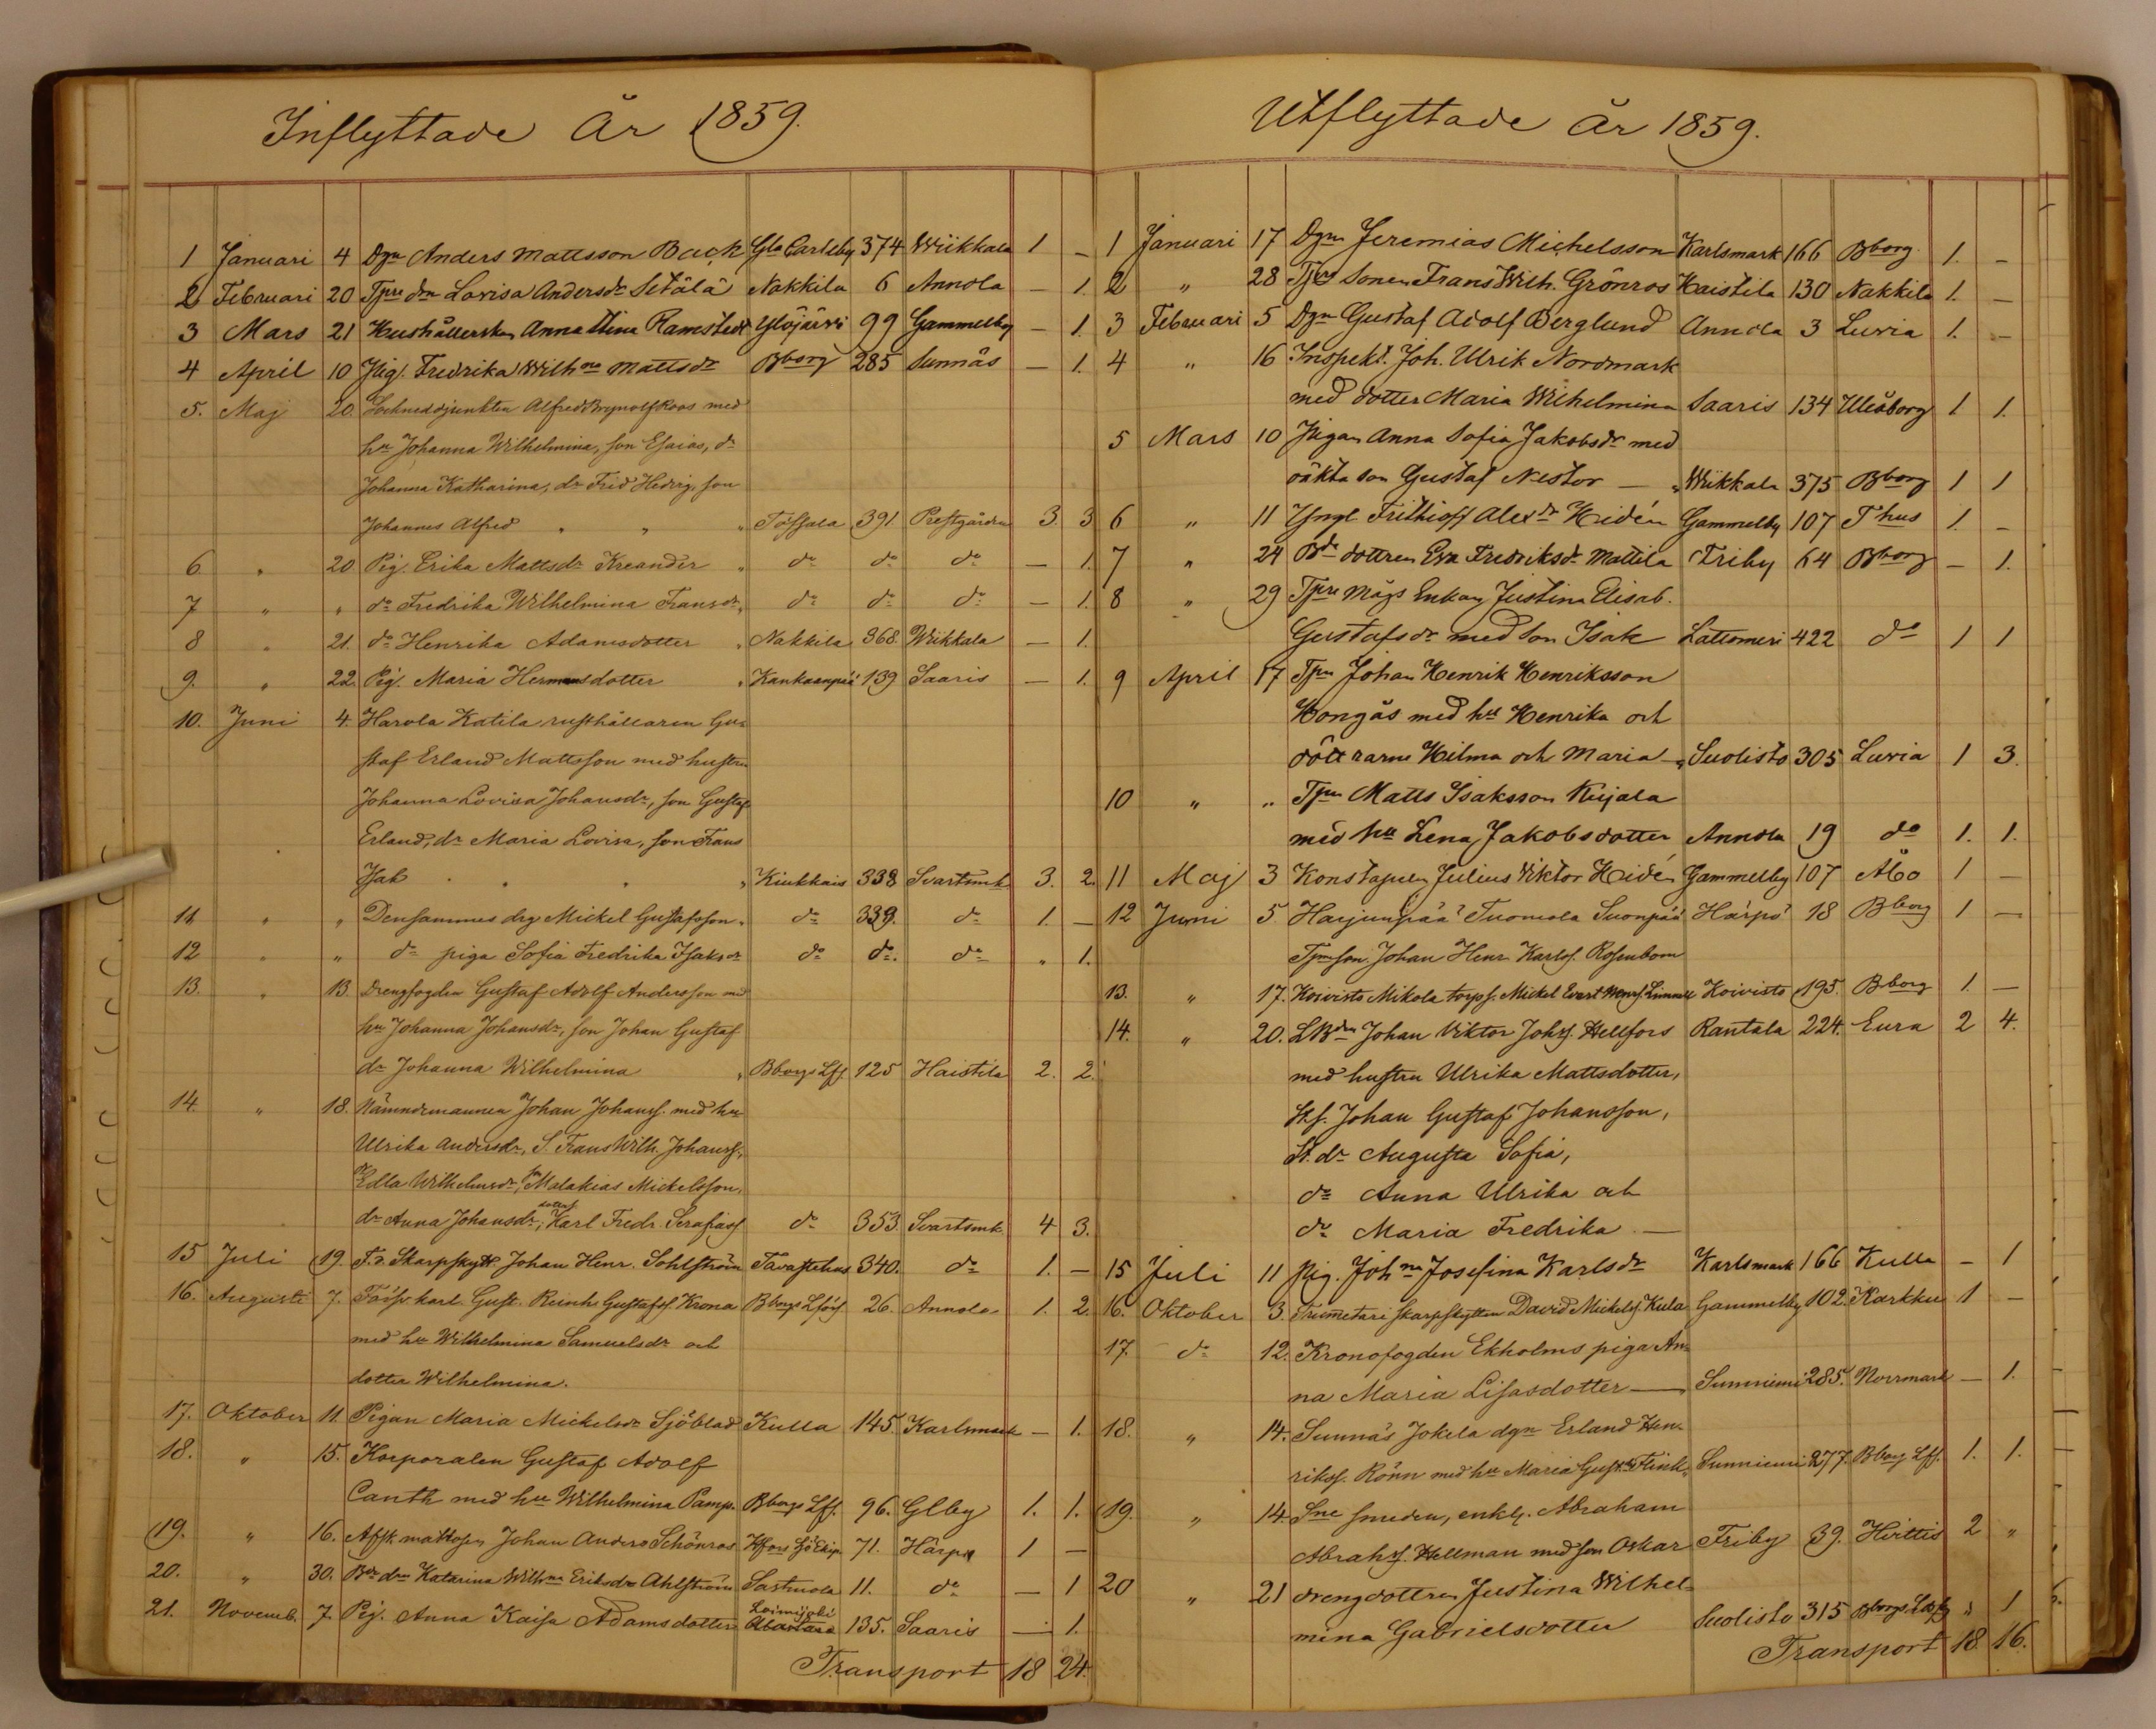 Inflyttade År 1859.
1 Januari 4 Dgn Anders Mattsson Back Gla Carleby 374 Wiikkala 1 –
2 Februari 20 Tpre dm Lovisa Andersdr Setälä Nakkila 6 Annola – 1.
3 Mars 21 Hushållerskan Anna Stina Ramstedt Ylöjärvi 99 Gammelby – 1.
4 April 10 Pig. Fredrika Wilhna Mattsdr Bborg 285 Sunnäs – 1.
5. Maj 20. Sockneadjunkten Alfred Brynolf Roos med
hu Johanna Wilhelmina, son Esaias, dr
Johanna Katharina, dr Frid Hedvig, son
Johannes Alfred " " " Töfsala 391. Prestgården 3. 3
6 " 20 Pig. Erika Mattsdr Kreander " do do do – 1.
7 " " do Fredrika Wilhelmina Fransdr " do do do – 1.
8 " 21. do Henrika Adamsdotter " Nakkila 368 Wiikkala – 1.
9. " 22. Pig. Maria Hermansdotter " Kankaanpää 139 Saaris – 1.
10. Juni 4. Harola Katila rusthållaren Gu-
staf Erland Mattsson med hustru
Johanna Lovisa Johansdr, son Gustaf
Erland, dr Maria Lovisa, son Frans
Isak " " " Kiukkais 338 Svartsmk 3. 2.
11. " " Densammes drg Mickel Gustafsson " do 339. do 1. –
12 " " do piga Sofia Fredrika Isaksdr do do. do " 1.
13. " 13. Drengfogden Gustaf Adolf Andersson med
hu Johanna Johansdr, son Johan Gustaf
dr Johanna Wilhelmina " Bborgs Lff 125 Haistila 2. 2.
14 " 18. Nämndemannen Johan Johanss. med hu
Ulrika Andersdr, S. Frans Wilh. Johanss,
Edla Wilhelmsdr, Malakias Mickelsson,
dr Anna Johansdr, dotters. Karl Fredr. Serafiass do 353 Svartsmk. 4 3.
15 Juli 19. F.d. Skarpskytt Johan Henr. Sohlström Tavastehus 340. do 1. –
16. Augusti 7. Karl Gust. Reinh Gustafss Krona Bborgs Lförs 26. Annola 1. 2.
med hu Wilhelmina Samuelsdr och
dotter Wilhelmina.
17. Oktober 11. Pigan Maria Mickelsdr Sjöblad Kulla 145. Karlsmark – 1.
18. " 15. Korporalen Gustaf Adolf
Canth med hu Wilhelmina Pamp. Bborgs Lff. 96. Glby 1. 1.
19. " 16. Afsk. matrosen Johan Anders Schönros Hfors Sjö Ekip. 71. Härpö 1 –
20. " 30. Bde dm Katarina Wilhna Eriksdr Ahlström Sastmola 11. do – 1
21. Novemb. 7. Pig. Anna Kaisa Adamsdotter Loimijoki 135. Saaris – 1.
Transport 18 24.
Utflyttade År 1859.
1 Januari 17 Dgn Jeremias Michelsson Karlsmark 166 Bborg 1. –
2 " 28 Tpre Sonen Frans Wilh. Grönros Haistila 130 Nakkila 1. –
3 Februari 5 Dgn Gustaf Adolf Berglund Annola 3 Luvia 1. –
4 " 16 Inspekt. Joh. Ulrik Nordmark
med dotter Maria Wilhelmina Saaris 134 Uleåborg 1 1.
5 Mars 10 Pigan Anna Sofia Jakobsdr med
oäkta son Gustaf Nestor – " Wiikkala 375 Bborg 1 1
6 " 11 Yngl Frithioff Alexdr Hidén Gammelby 107 Thus 1. –
7 " 24 Bde dottren Eva Fredriksdr Mattila Friby 64 Bborg – 1.
8 " 29 Tpre Mågs Enkan Justina Elisab.
Gustafsdr med Son Isak Lattomeri 422 do 1 1
9 April 17 Tpn Johan Henrik Henriksson
Hongås med hu Henrika och
döttrarne Hilma och Maria – " Suolisto 305 Luvia 1 3.
10 " " Tpn Matts Isaksson Kujala
med hu Lena Jakobsdotter Annola 19 do 1. 1.
11 Maj 3 Konstapeln Julius Viktor Heidén Gammelby 107 Åbo 1 –
12 Juni 5. Harjunpää Tuomola Suonpää Härpö 18 Bborg 1 –
Tpn son Johan Henr Karlss. Rosenbom
13. " 17. Koivisto Mikola torps. Mickel Evert Henrs. Koivisto 195. Bborg 1. –
14. " 20. LBden Johan Viktor Johss. Hellfors Rantala 224. Eura 2 4.
med hustru Ulrika Mattsdotter,
Johan Gustaf Johansson,
St. dr Augusta Sofia,
do Anna Ulrika och
do Maria Fredrika –
15 Juli 11 Pig. Johna Josefina Karlsdr Karlsmark 166 Kulla – 1
16. Oktober 3. skarpskytten David Mickelss. Kula Gammelby 102. Karkku 1 –
17. do 12. Kronofogden Ekholms piga An-
na Maria Lisasdotter – Sunniemi 285. Norrmark – 1.
18. " 14. Sunnäs Jokela dgn Erland Hen-
rikss. Rönn med hu Maria Gustdr Flink, Sunniemi 277. Bborg Lff. 1. 1.
19. " 14. Sne smeden, enkl. Abraham
Abrahss. Hellman med son Oskar Friby 39. Hirttis 2 "
20 " 21 drengdottren Justina Wilhel-
mina Gabrielsdotter Suolisto 315 Bborgs " 1
Transport 18 16.